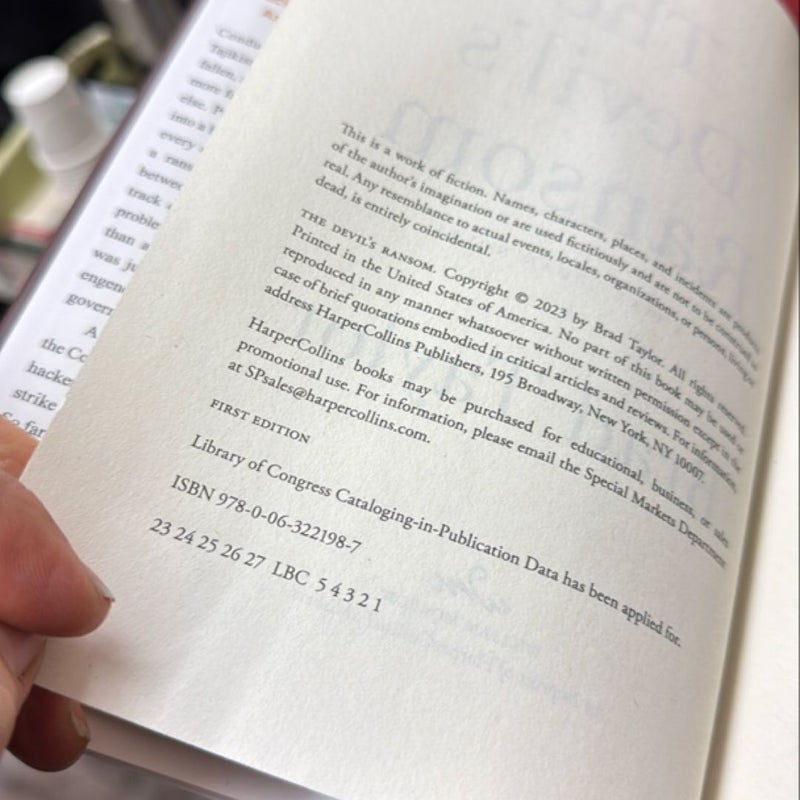 Condu
Tajikis
fallen,
more
else. P
into a
every
a rans
betwee
track
proble
than a
was ju
engen
govern
A
the Co
hacke
strike
So far
This is a work of fiction. Names, characters, places, and incidents are products
of the author's imagination or are used fictitiously and are not to be construed as
real. Any resemblance to actual events, locales, organizations, or persons, living or
dead, is entirely coincidental.
THE DEVIL'S RANSOM. Copyright © 2023 by Brad Taylor. All rights reserved.
Printed in the United States of America. No part of this book may be used or
reproduced in any manner whatsoever without written permission except in the
case of brief quotations embodied in critical articles and reviews. For information,
address HarperCollins Publishers, 195 Broadway, New York, NY 10007.
HarperCollins books may be purchased for educational, business, or sales
promotional use. For information, please email the Special Markets Department
at SPsales@harpercollins.com.
FIRST EDITION
Library of Congress Cataloging-in-Publication Data has been applied for.
ISBN 978-0-06-322198-7
23 24 25 26 27 LBC 5 4 3 2 1